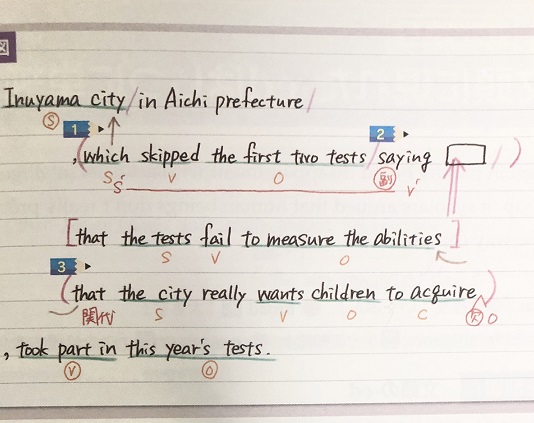 図
Inuyama city / in Aichi prefecture /
S
1 2
, (which skipped the first two tests / saying / )
S S' V O 副 V'
[that the tests fail to measure the abilities]
S V O
3
(that the city really wants children to acquire)
関代 S V O C 欠 O
, took part in this year's tests.
V O